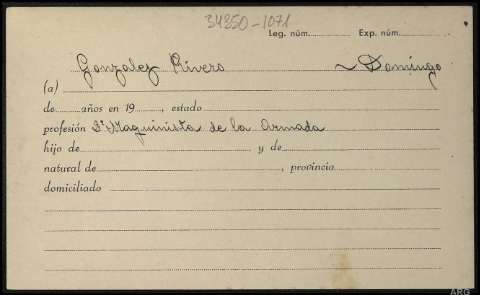 34350-1071
Leg. núm. Exp. núm.
Gonzalez Rivero ~ Domingo
(a)
de años en 19 , estado
profesión 2º Maquinista de la Armada
hijo de y de
natural de , provincia
domiciliado
ARG